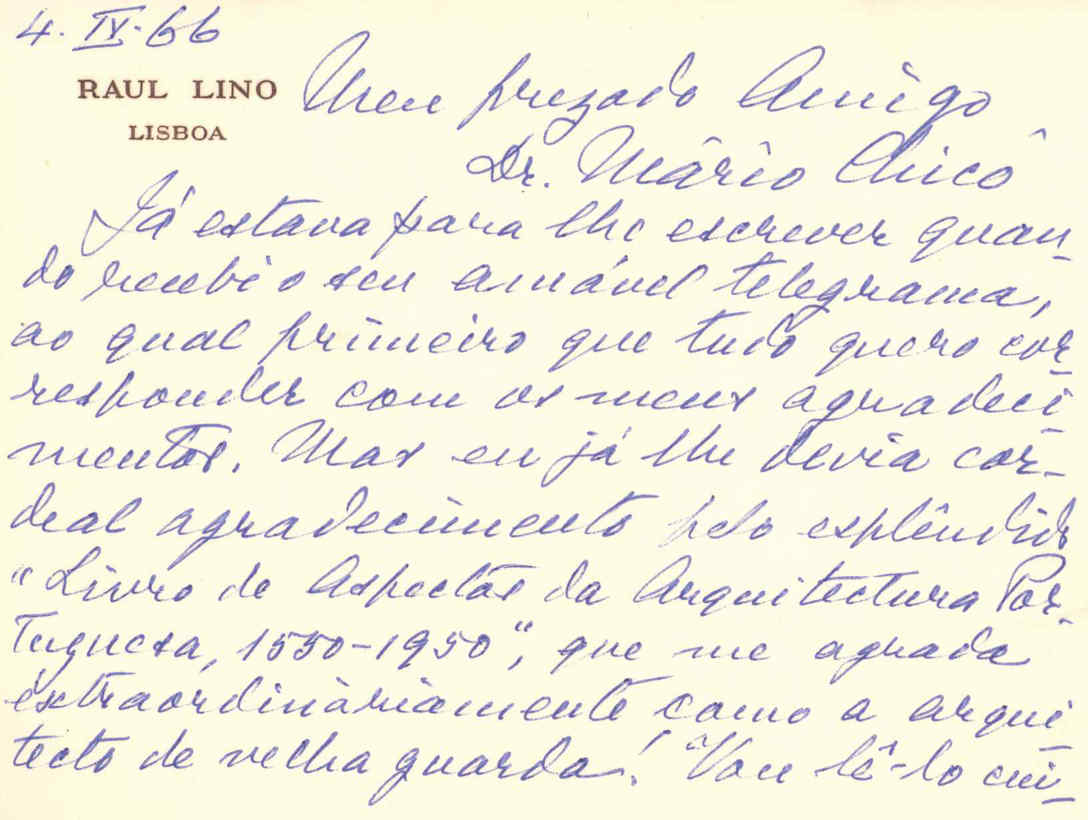 4. IV. 66
RAUL LINO
LISBOA
Meu prezado Amigo
Dr. Mário Chicó
Já estava para lhe escrever quan-
do recebi o seu amável telegrama,
ao qual primeiro que tudo quero cor-
responder com os meus agradeci-
mentos. Mas eu já lhe devia cor-
deal agradecimento pelo esplêndido
"Livro de Aspectos da Arquitectura Por-
tuguesa, 1550-1950", que me agrada
extraordinàriamente como a arqui-
tecto de velha guarda! Vou lê-lo cui-